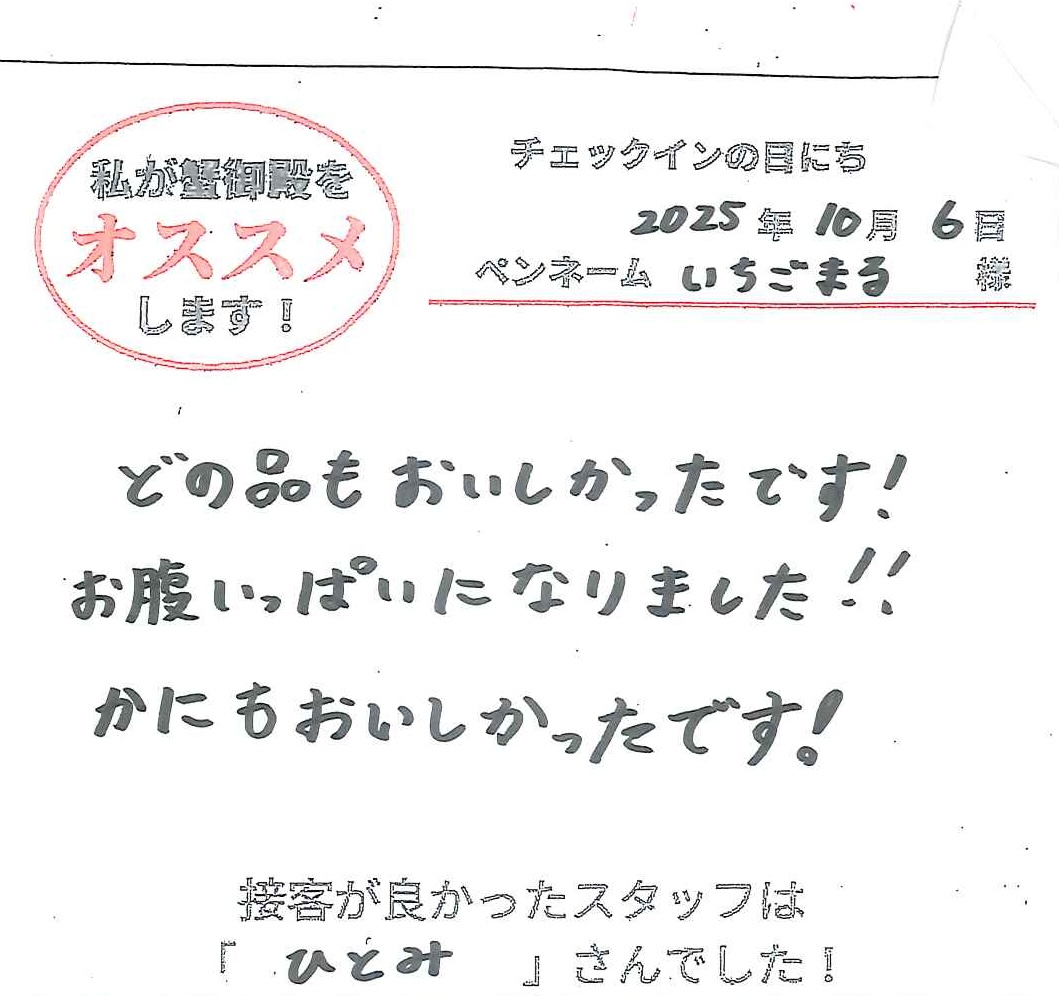 私が蟹御殿を
オススメ
します！
チェックインの日にち
2025年10月6日
ペンネーム いちごまる 様
どの品もおいしかったです!
お腹いっぱいになりました!!
かにもおいしかったです!
接客が良かったスタッフは
「 ひとみ 」さんでした！